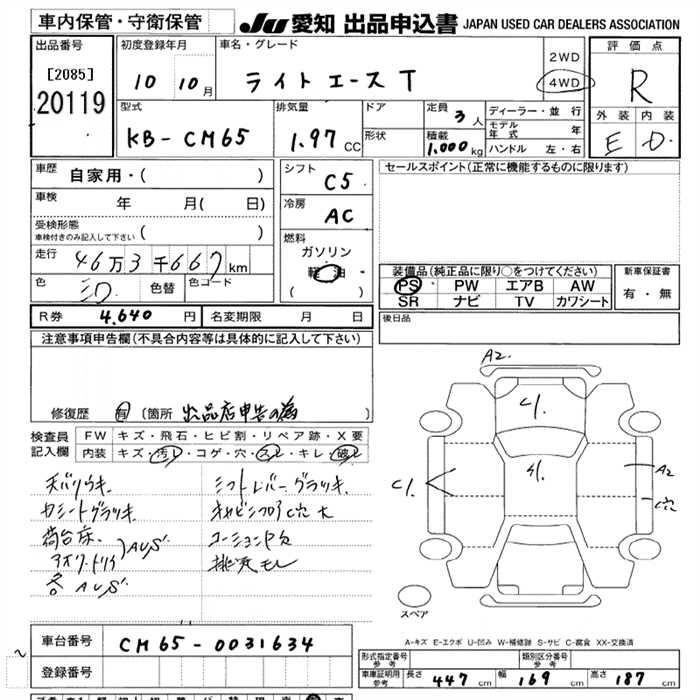 車内保管・守衛保管
JU 愛知 出品申込書 JAPAN USED CAR DEALERS ASSOCIATION
出品番号
[2085]
20119
初度登録年月
10 10月
車名・グレード
ライトエースT
2WD
4WD
評価点
R
外装 内装
E D
型式
KB-CM65
排気量
1.97 CC
ドア
形状
定員 3人
積載 1,000kg
ディーラー・並行
モデル年式 年
ハンドル 左・右
車歴
自家用・( )
車検
年 月( 日)
受検形態
車検付きのみ記入して下さい ( )
走行
46万3千667km
色
色替
色コード
シフト
C5
冷房
AC
燃料
ガソリン
軽油
( )
セールスポイント(正常に機能するものに限ります)
装備品(純正品に限り○をつけてください)
PS PW エアB AW
SR ナビ TV カワシート
新車保証書
有・無
R券 4,640円
名変期限 月 日
後日品
注意事項申告欄(不具合内容等は具体的に記入して下さい)
修復歴 有 [箇所 出品店申告の為 ]
検査員
記入欄
FW キズ・飛石・ヒビ割・リペア跡・X要
内装 キズ・汚レ・コゲ・穴・スレ・キレ・破レ
天バリウキ
シフトレバーグラツキ
荷台床
コーションP欠
排気モレ
A2
A2
スペア
A-キズ E-エクボ U-凹み W-補修跡 S-サビ C-腐食 XX-交換済
車台番号
CM65-0031634
登録番号
形式指定番号
参考
類別区分番号
参考
車庫証明用
参考
長さ 447cm
幅 169cm
高さ 187cm